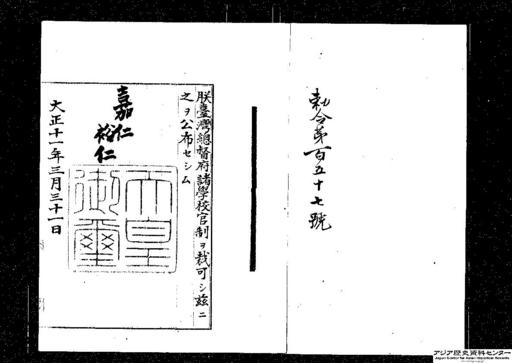 勅令第百五十七號
朕臺灣總督府諸學校官制ヲ裁可シ茲ニ
之ヲ公布セシム
嘉仁
裕仁
天皇御璽
大正十一年三月三十一日
アジア歴史資料センター
Japan Center for Asian Historical Records